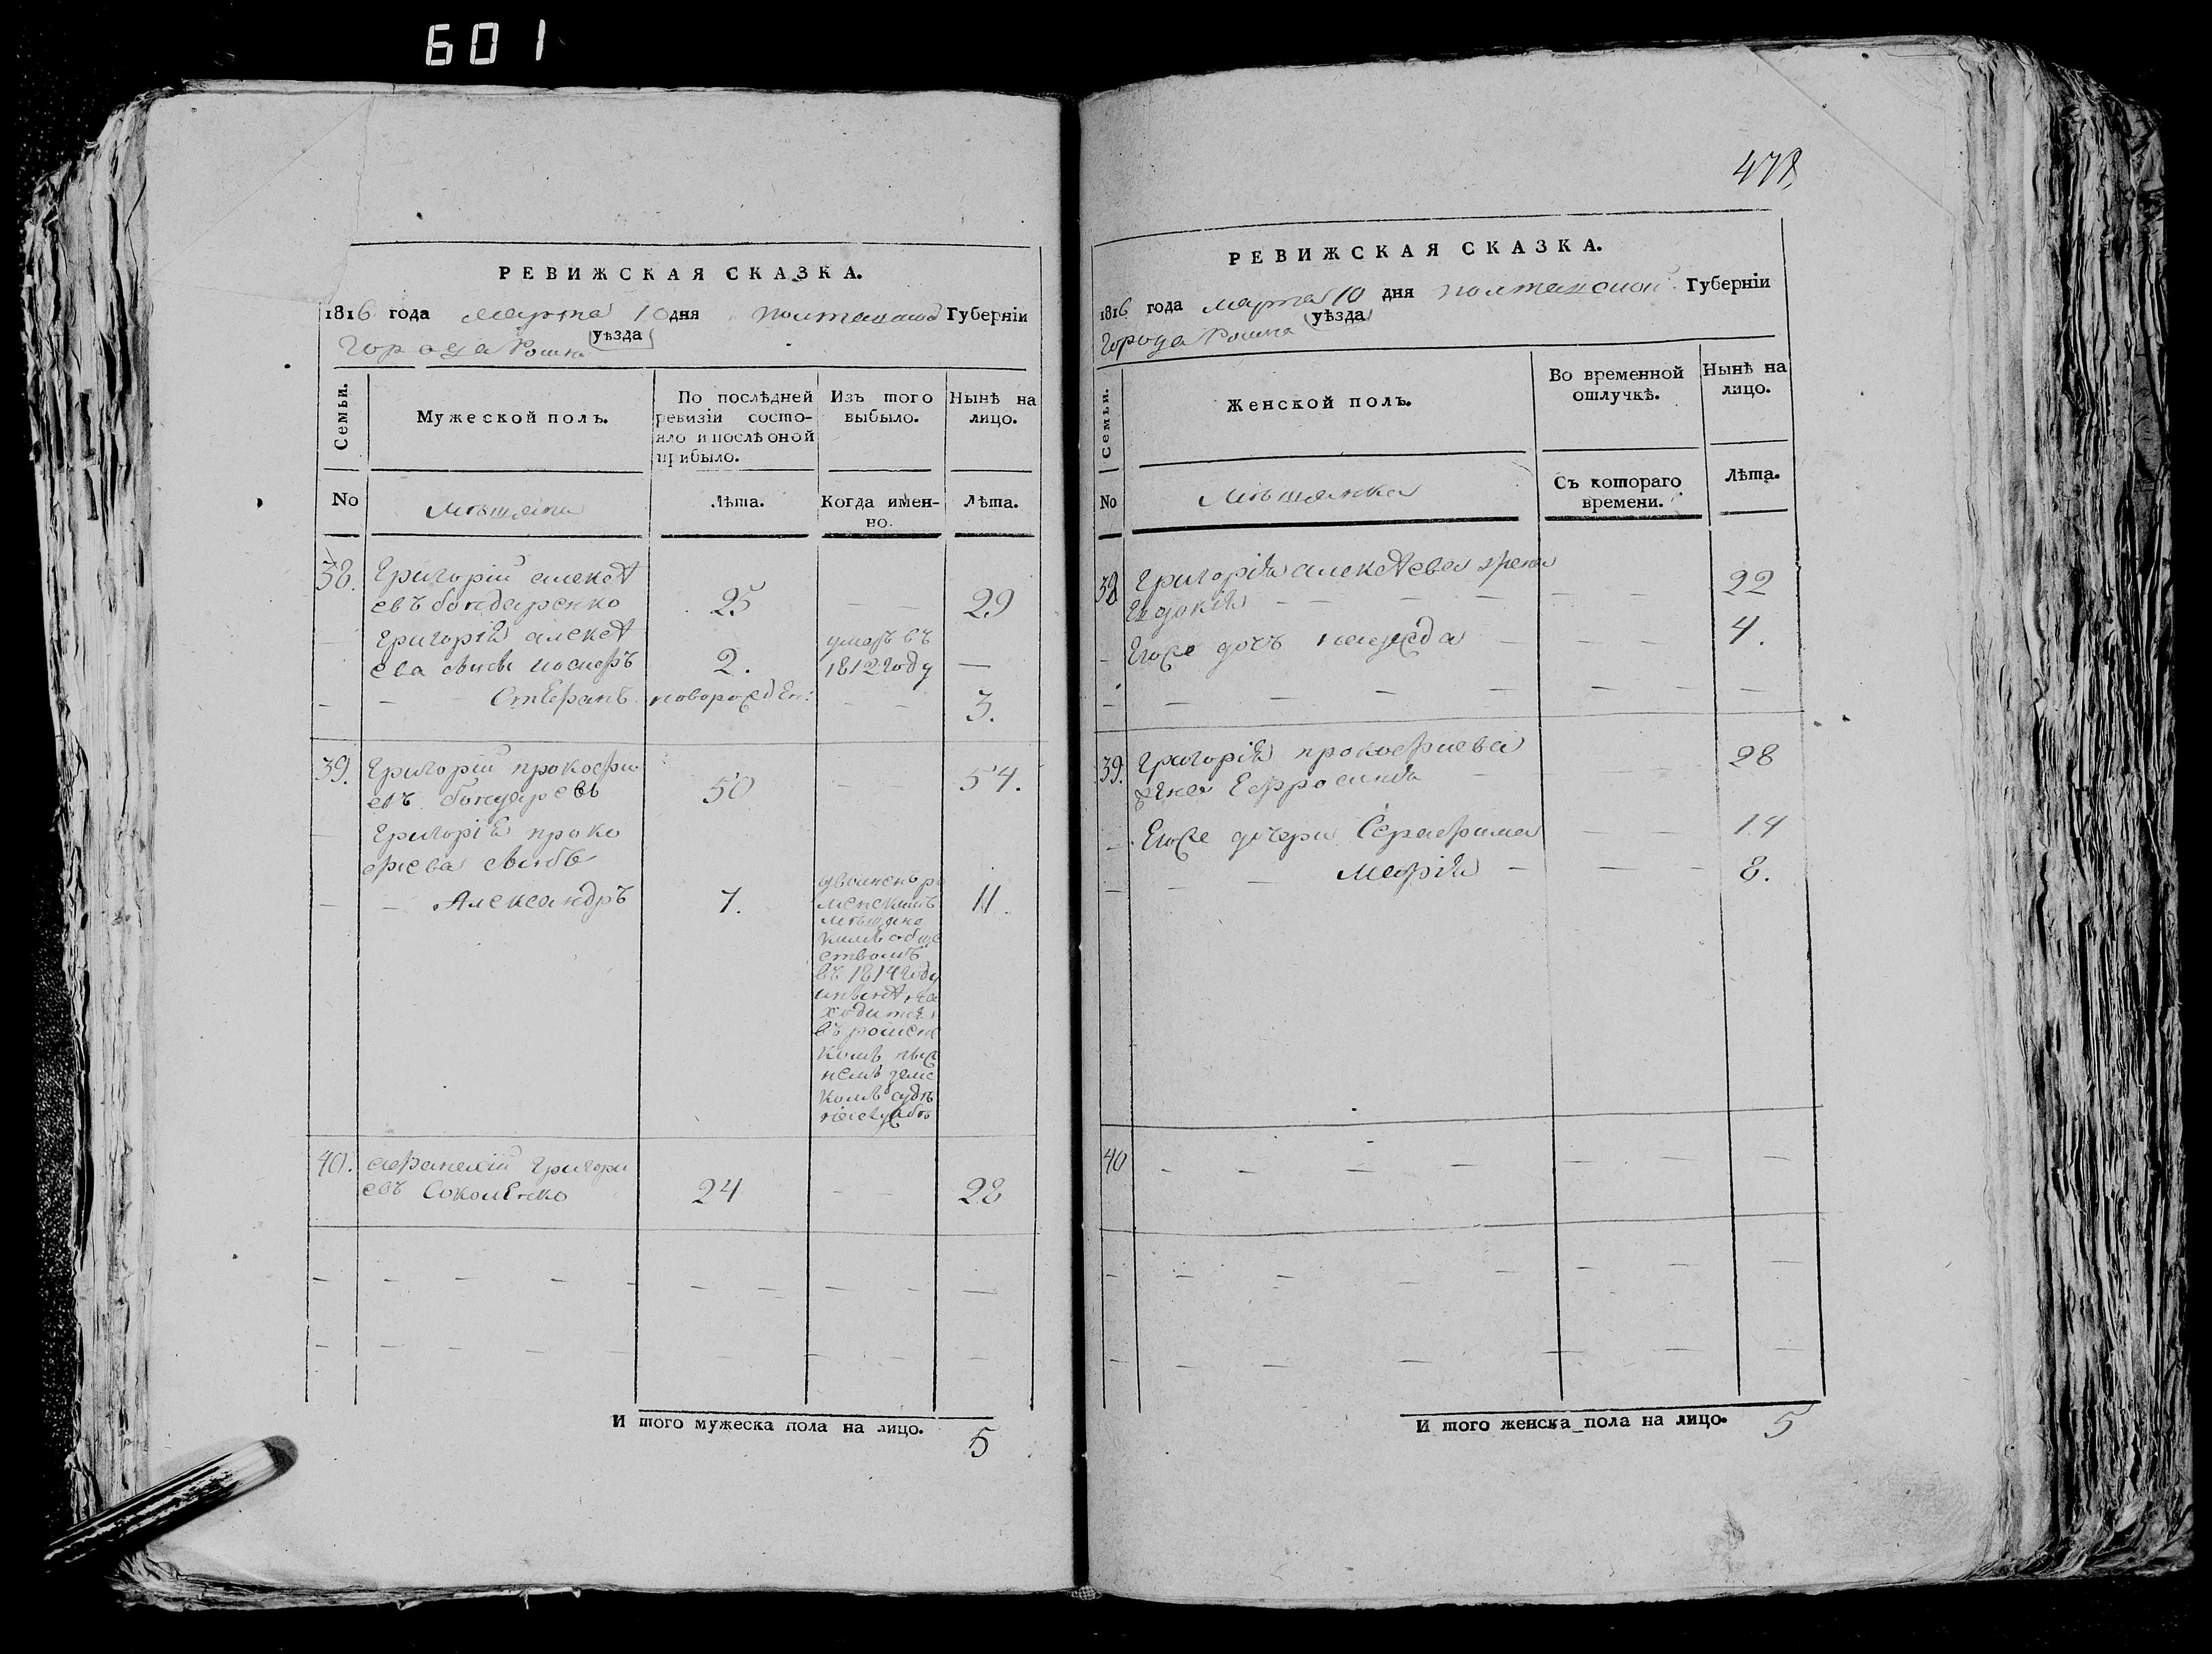 601
РЕВИЖСКАЯ СКАЗКА.
1816 года марта 10 дня Полтавской Губерніи
города Ромна уѣзда
Семьи.
Мужеской полъ.
По послѣдней
ревизіи состо-
яло и послѣ оной
прибыло.
Изъ того
выбыло.
Нынѣ на
лицо.
No
Мѣщяне
Лѣта.
Когда имен-
но.
Лѣта.
38. Григорій алексѣ
евъ бондаренко 25 — 29
Григорія алексѣ
ева сынъ 2. умеръ въ
1812 году —
— — Стефанъ новорожден: — — 3.
39. Григорій прокофи
евъ бондаревъ 50 — — 54.
Григорія проко
фиева сынъ
— — Александръ 7. 11.
мѣщанс
кимъ обще
ствомъ
въ 1814 году
ходится
въ ромен
комъ ниж
немъ земс
комъ судѣ
40. афанасій Григори
евъ Соколенко 24 — — 28
И того мужеска пола на лицо. 5
478
РЕВИЖСКАЯ СКАЗКА.
1816 года марта 10 дня Полтавской Губерніи
города Ромна уѣзда
Семьи.
Женской полъ.
Во временной
отлучкѣ.
Нынѣ на
лицо.
No
Мѣщянки
Съ котораго
времени.
Лѣта.
38 Григорія алексѣева жена
Евдокія — — — — 22
Егоже дочь — — — 4.
39. Григорія прокофиева
жена Ефросинія — — 28
Егоже дочери Серафима — — 14
— — Марія — — — 8.
40 — — — — — — —
И того женска пола на лицо. 5